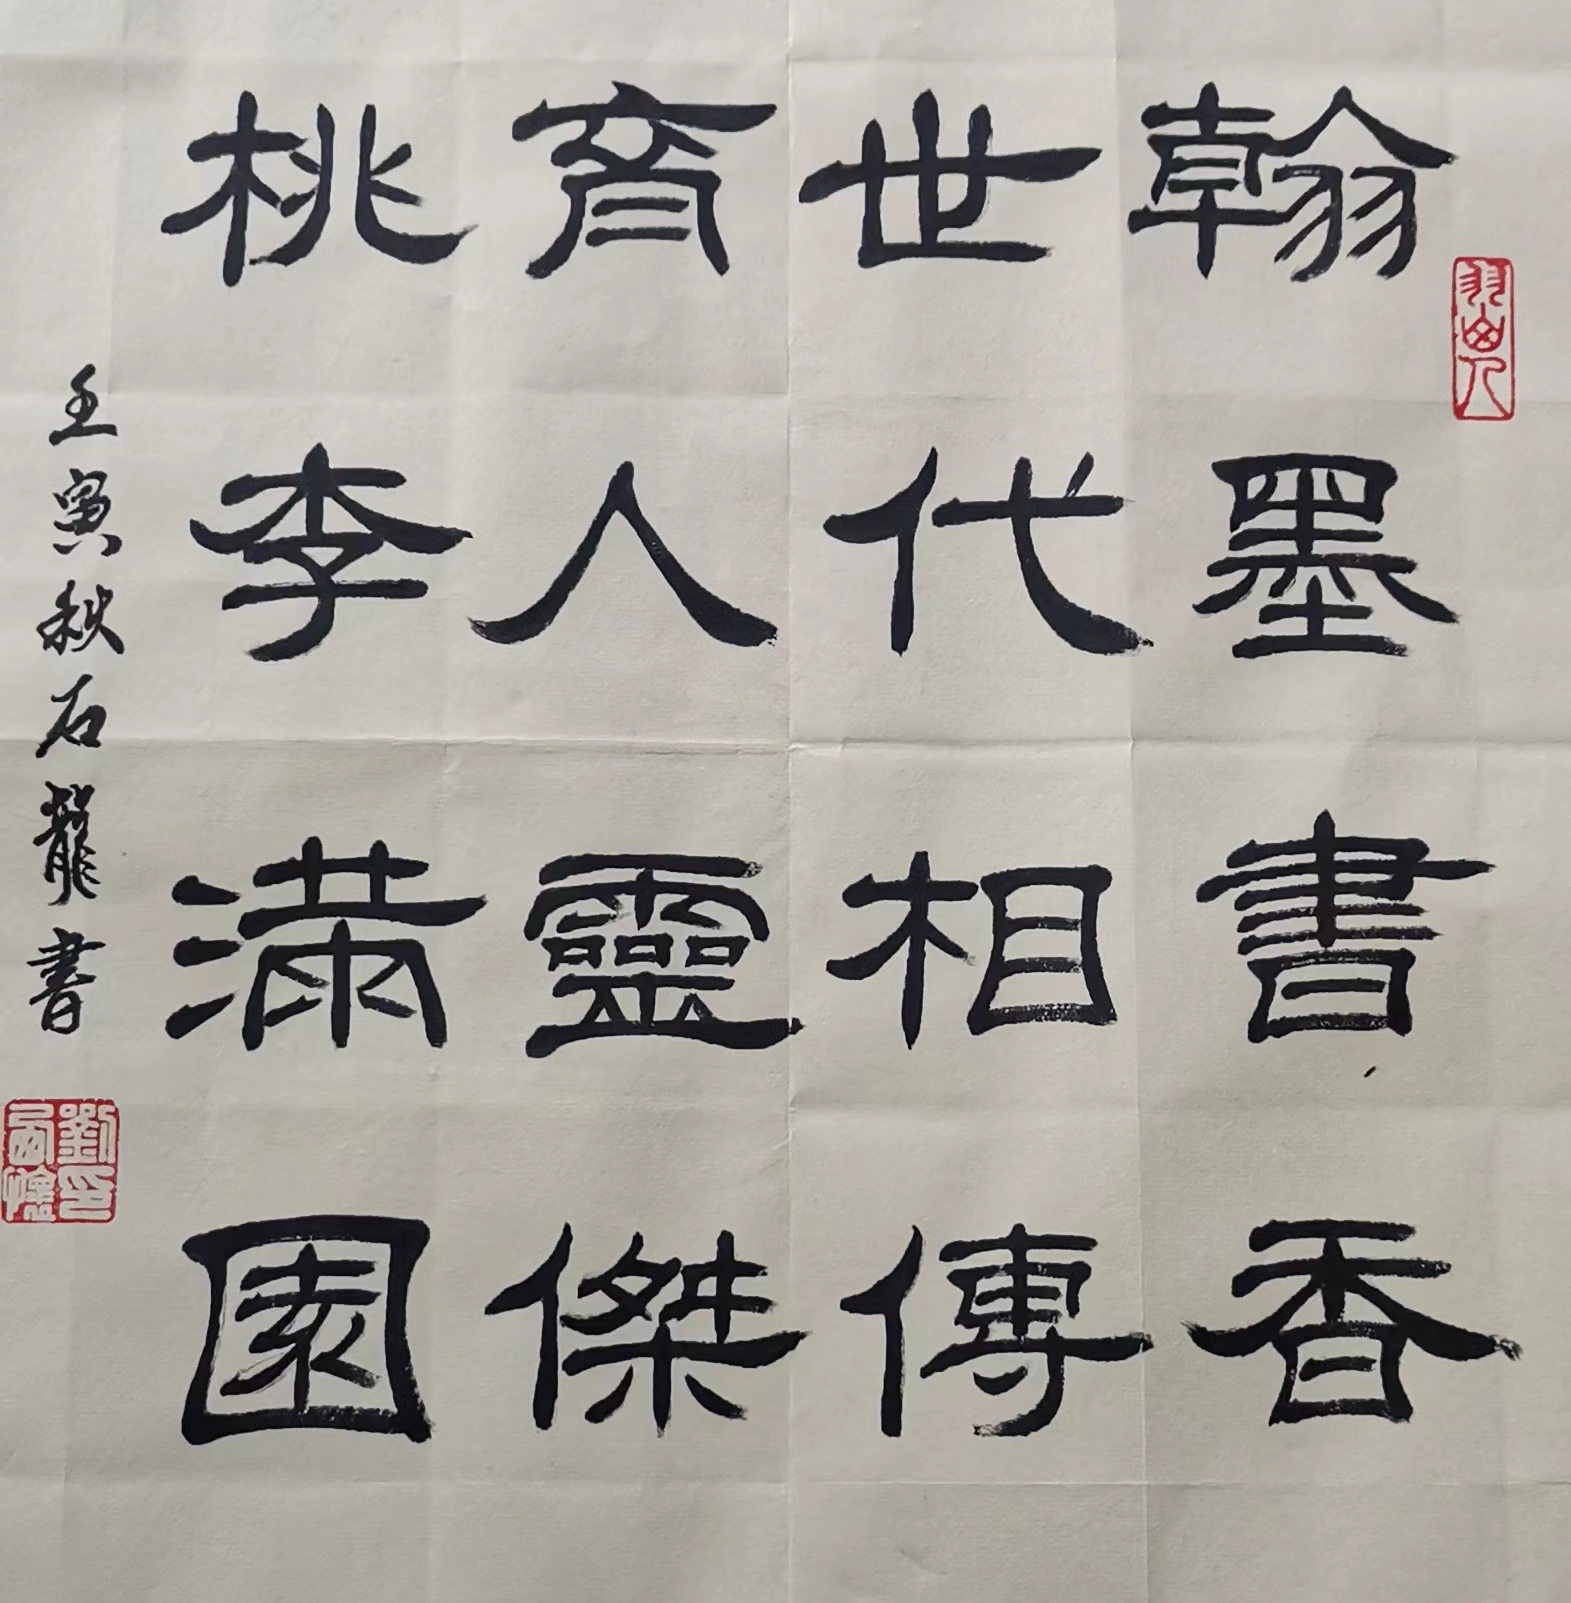 翰墨書香
世代相傳
育人靈傑
桃李滿園
壬寅秋石龍書